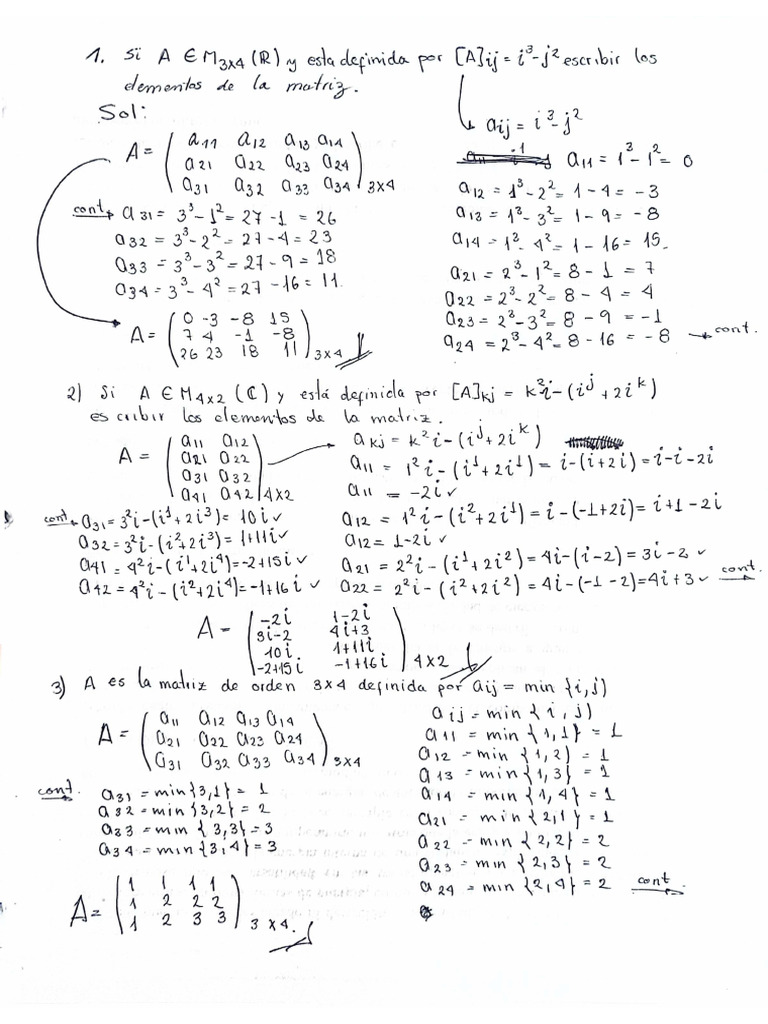 1. Si A ∈ M3x4 (R) y esta definida por [A]ij = i³-j² escribir los
elementos de la matriz.
Sol:
aij = i³-j²
A = ( a11 a12 a13 a14
a21 a22 a23 a24
a31 a32 a33 a34 ) 3x4
a11 = 1³-1² = 0
a12 = 1³-2² = 1-4 = -3
a13 = 1³-3² = 1-9 = -8
a14 = 1³-4² = 1-16 = 15.
a21 = 2³-1² = 8-1 = 7
a22 = 2³-2² = 8-4 = 4
a23 = 2³-3² = 8-9 = -1
a24 = 2³-4² = 8-16 = -8 → cont.
cont → a31 = 3³-1² = 27-1 = 26
a32 = 3³-2² = 27-4 = 23
a33 = 3³-3² = 27-9 = 18
a34 = 3³-4² = 27-16 = 11.
A = ( 0 -3 -8 15
7 4 -1 -8
26 23 18 11 ) 3x4
2) Si A ∈ M4x2 (C) y está definida por [A]kj = k²i-(i^j+2i^k)
escribir los elementos de la matriz.
A = ( a11 a12
a21 a22
a31 a32
a41 a42 ) 4x2
akj = k²i-(i^j+2i^k)
a11 = 1²i-(i¹+2i¹) = i-(i+2i) = i-i-2i
a11 = -2i ✓
a12 = 1²i-(i²+2i¹) = i-(-1+2i) = i+1-2i
a12 = 1-2i ✓
a21 = 2²i-(i¹+2i²) = 4i-(i-2) = 3i-2 ✓
a22 = 2²i-(i²+2i²) = 4i-(-1-2) = 4i+3 ✓ cont. →
cont → a31 = 3²i-(i¹+2i³) = 10i ✓
a32 = 3²i-(i²+2i³) = 1+11i ✓
a41 = 4²i-(i¹+2i⁴) = -2+15i ✓
a42 = 4²i-(i²+2i⁴) = -1+16i ✓
A = ( -2i 1-2i
3i-2 4i+3
10i 1+11i
-2+15i -1+16i ) 4x2
3) A es la matriz de orden 3x4 definida por aij = min {i,j)
A = ( a11 a12 a13 a14
a21 a22 a23 a24
a31 a32 a33 a34 ) 3x4
aij = min {i,j)
a11 = min {1,1} = 1
a12 = min {1,2) = 1
a13 = min {1,3} = 1
a14 = min {1,4} = 1
a21 = min {2,1} = 1
a22 = min {2,2} = 2
a23 = min {2,3} = 2
a24 = min {2,4} = 2 cont →
cont. → a31 = min{3,1} = 1
a32 = min{3,2} = 2
a33 = min{3,3} = 3
a34 = min{3,4} = 3
A = ( 1 1 1 1
1 2 2 2
1 2 3 3 ) 3x4.